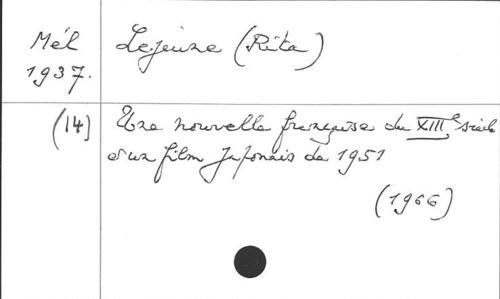 Mél
1937.
Lejeune (Rita)
(14)
Une nouvelle française du XIIIe siècle
et un film Japonais de 1951
(1966)